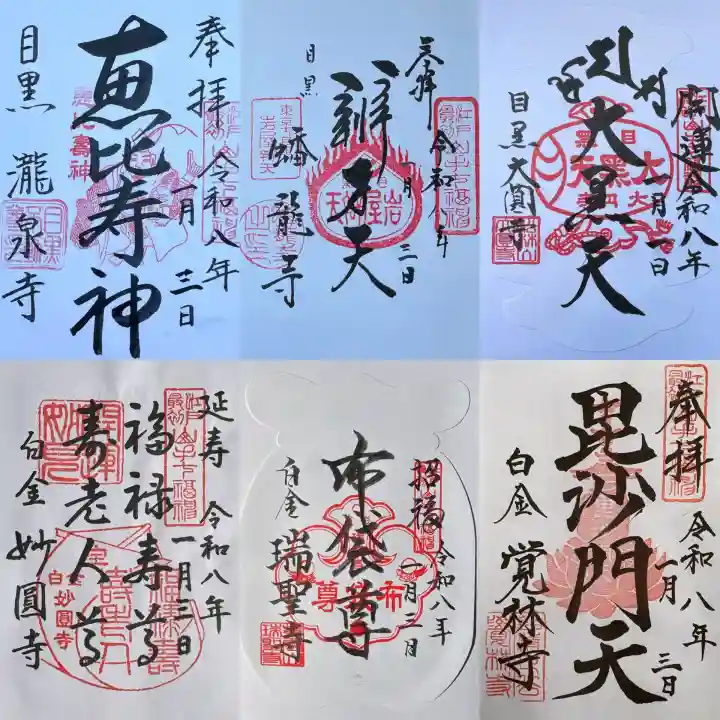 奉拝
令和八年
一月三日
恵比寿神
恵比壽神
目黒
瀧泉寺
奉拝
令和八年
一月三日
辨才天
岩屋
目黒
蟠龍寺
開運
令和八年
一月
日
大黒天
目黒
大黒天
目黒大圓寺
延寿
令和八年
一月三日
福禄寿尊
寿老人尊
白金
妙圓寺
白金
妙圓寺
招福
令和八年
一月
日
布袋尊
布袋尊
白金
瑞聖寺
奉拝
令和八年
一月
三日
毘沙門天
白金
覚林寺